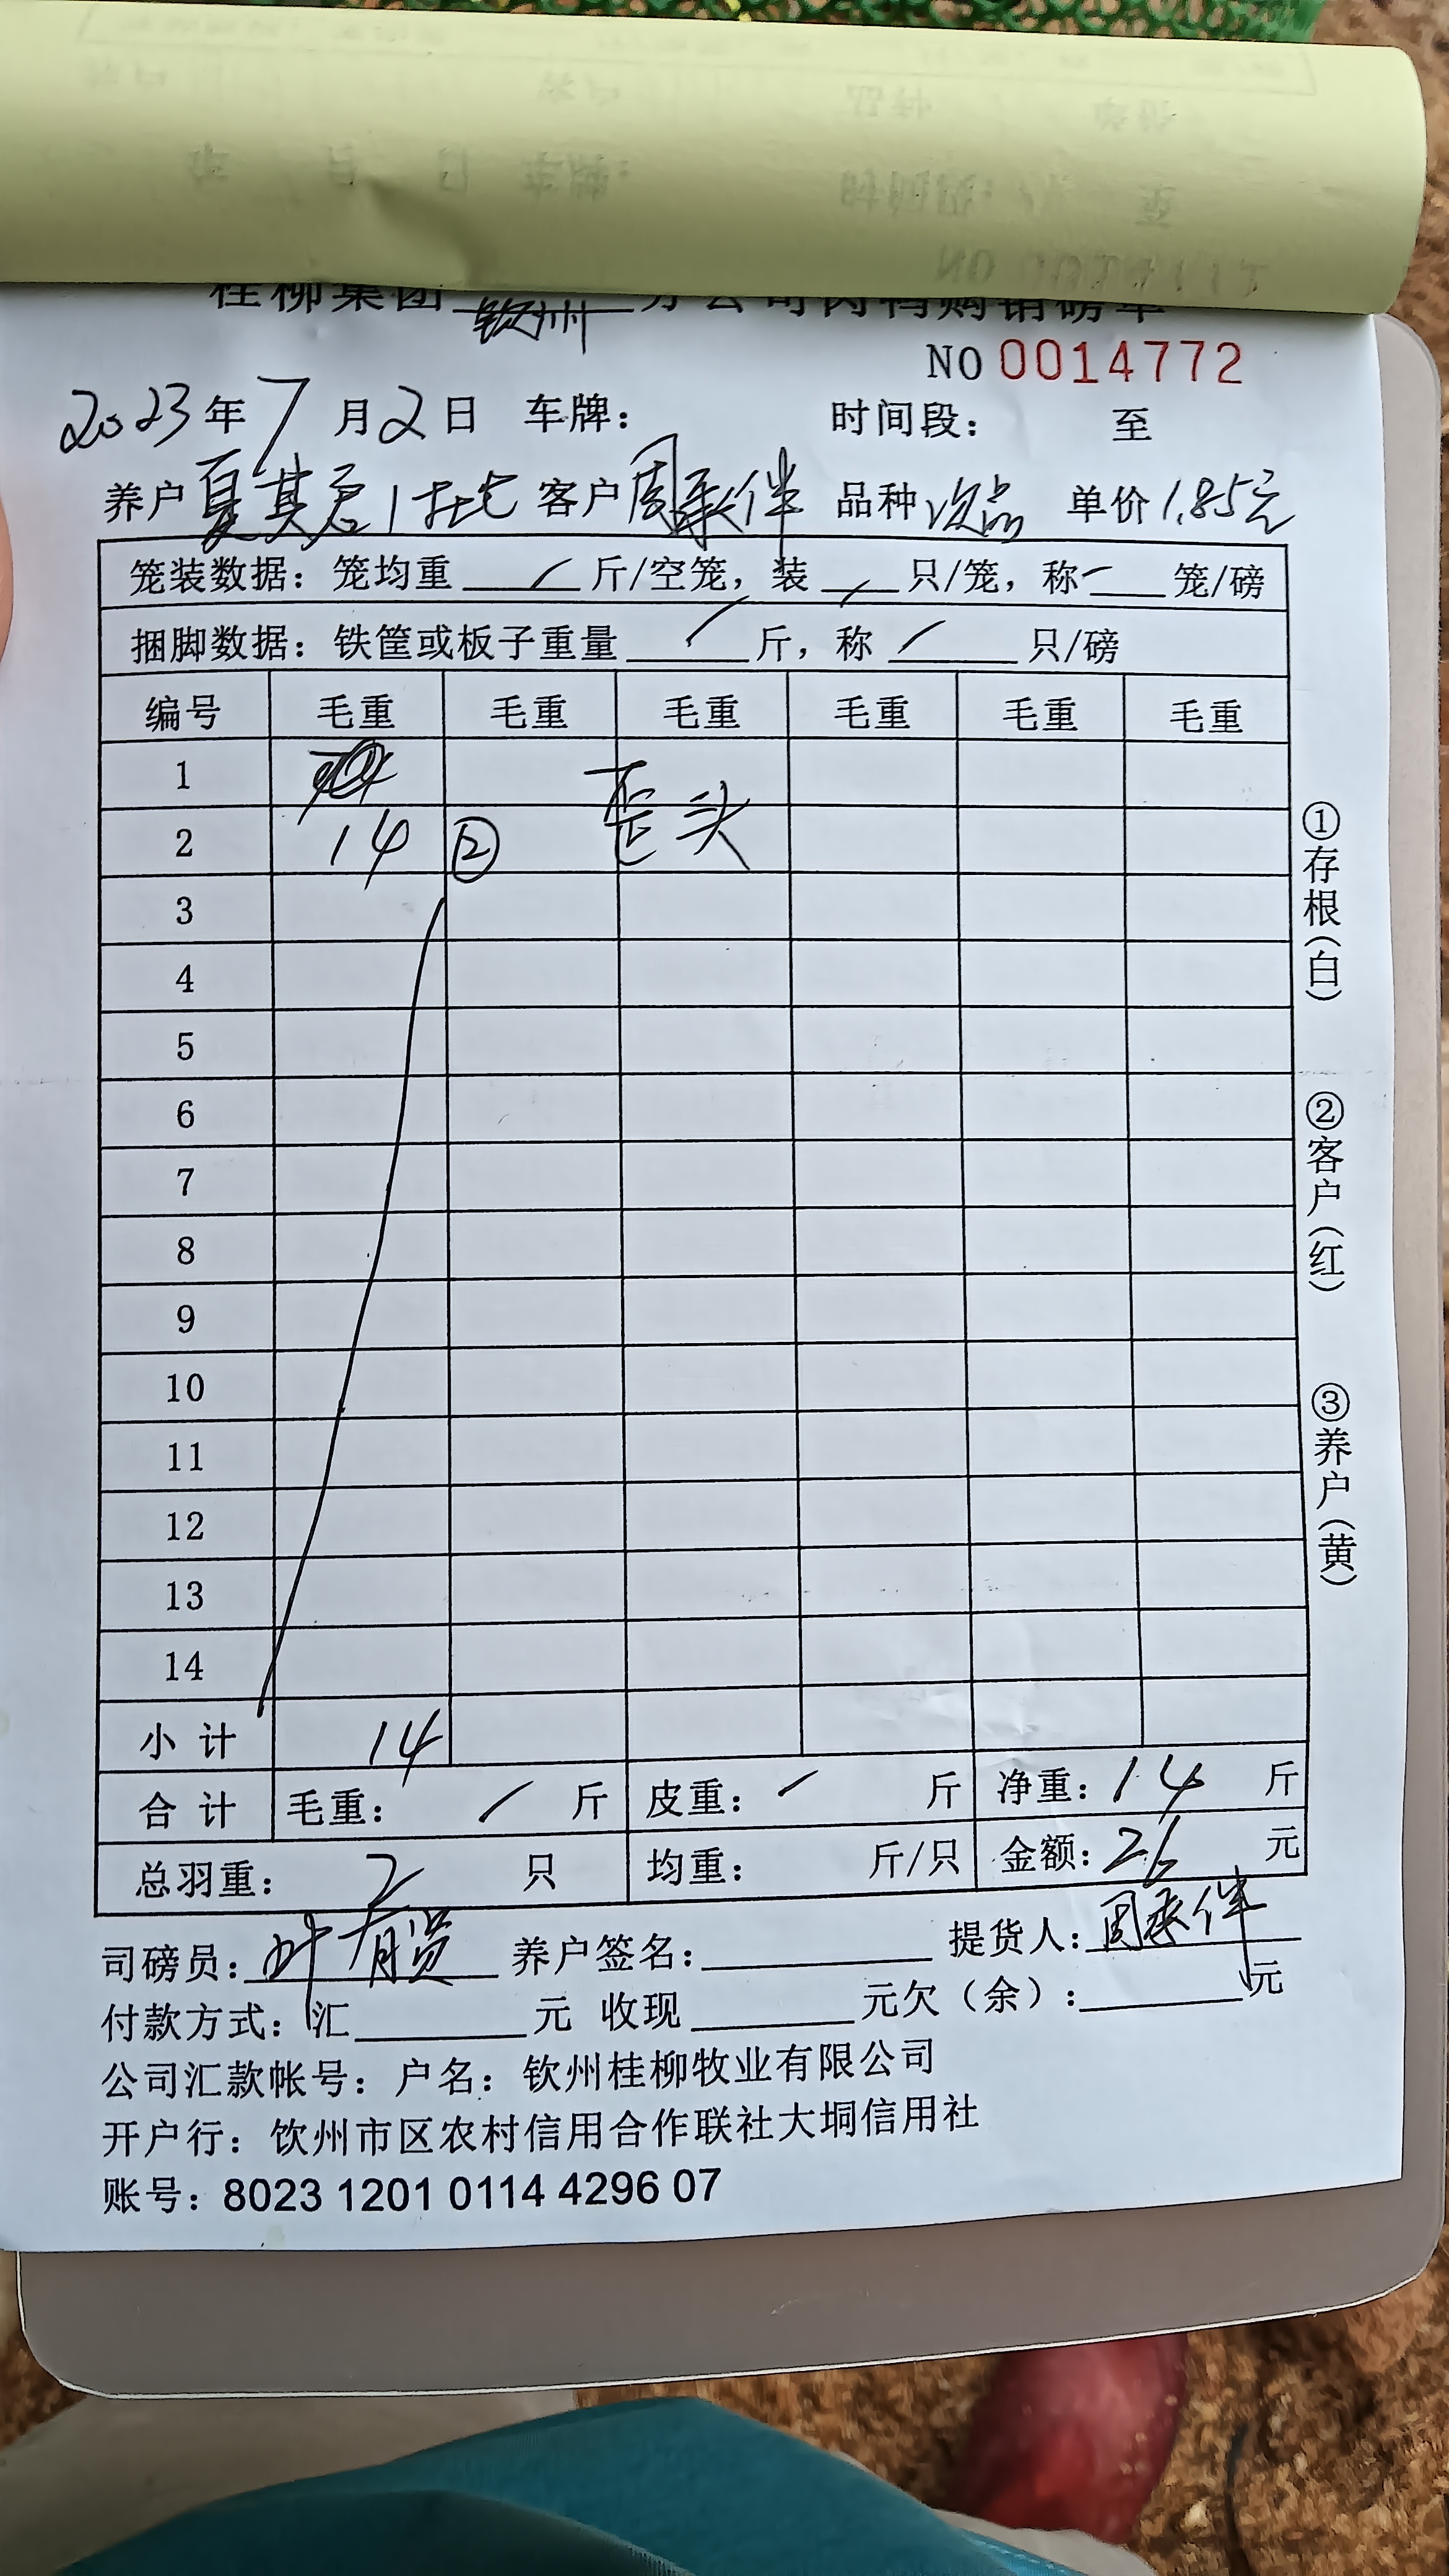 桂柳集团 钦州 分公司肉鸭购销磅单
NO 0014772
2023年7月2日 车牌： 时间段： 至
养户 夏其君1批 客户 周承伴 品种 次品 单价 1.85元
笼装数据：笼均重 / 斤/空笼，装 / 只/笼，称 / 笼/磅
捆脚数据：铁筐或板子重量 / 斤，称 / 只/磅
编号 毛重 毛重 毛重 毛重 毛重 毛重
1
2 14 ② 歪头
3
4
5
6
7
8
9
10
11
12
13
14
小计 14
合计 毛重： / 斤 皮重： / 斤 净重：14 斤
总羽重： 2 只 均重： 斤/只 金额：26 元
司磅员：叶有 养户签名： 提货人：周承伴
付款方式：汇 元 收现 元欠（余）： 元
公司汇款帐号：户名：钦州桂柳牧业有限公司
开户行：饮州市区农村信用合作联社大垌信用社
账号：8023 1201 0114 4296 07
①存根（白）
②客户（红）
③养户（黄）